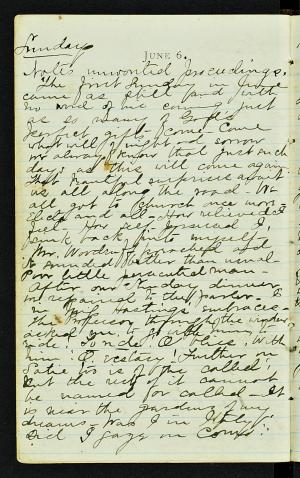 Sunday
JUNE 6.
Notes unwonted proceedings.
The first Sunday in June
came as still and with
no word of me coming just
as so many of God's
perfect gifts come - Come
what will of night or sorrow
we always know that just such
days as this will come again
that beautiful surprises await
us all along the road. We
all got to church once more -
and all - How relieved I
feel - How self
sunk back into myself
Mr. Woodruff preached and
it sounded better than usual
Poor little persecuted man -
After our Sunday dinner
we repaired to the parlor -
in Hastings embraces
The Professor of the window
asked me to
ride! To ride! O bliss! With
him! O, ecstacy! Further on
Satie is of the called,
But the rest of it cannot
be named for called - It
is near the garden of my
dreams - Was I in
Did I gaze on